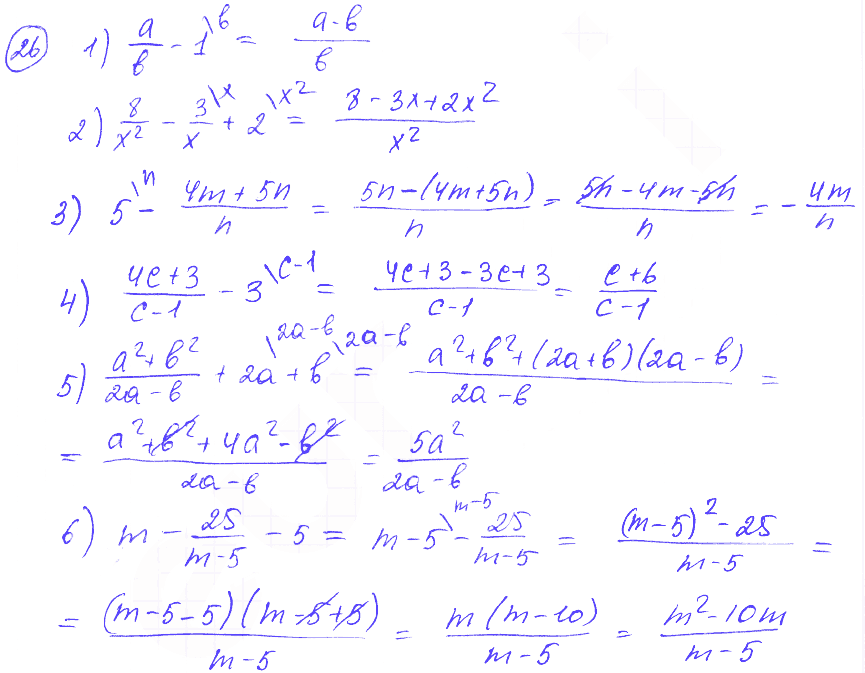 26 1) a/b - 1\b = (a-b)/b
2) 8/x² - 3\x/x + 2\x² = (8-3x+2x²)/x²
3) 5\n - (4m+5n)/n = (5n-(4m+5n))/n = (5n-4m-5n)/n = -4m/n
4) (4c+3)/(c-1) - 3\c-1 = (4c+3-3c+3)/(c-1) = (c+6)/(c-1)
5) (a²+b²)/(2a-b) + 2a\2a-b + b\2a-b = (a²+b²+(2a+b)(2a-b))/(2a-b) =
= (a²+b²+4a²-b²)/(2a-b) = 5a²/(2a-b)
6) m - 25/(m-5) - 5 = m-5\m-5 - 25/(m-5) = ((m-5)²-25)/(m-5) =
= (m-5-5)(m-5+5)/(m-5) = m(m-10)/(m-5) = (m²-10m)/(m-5)